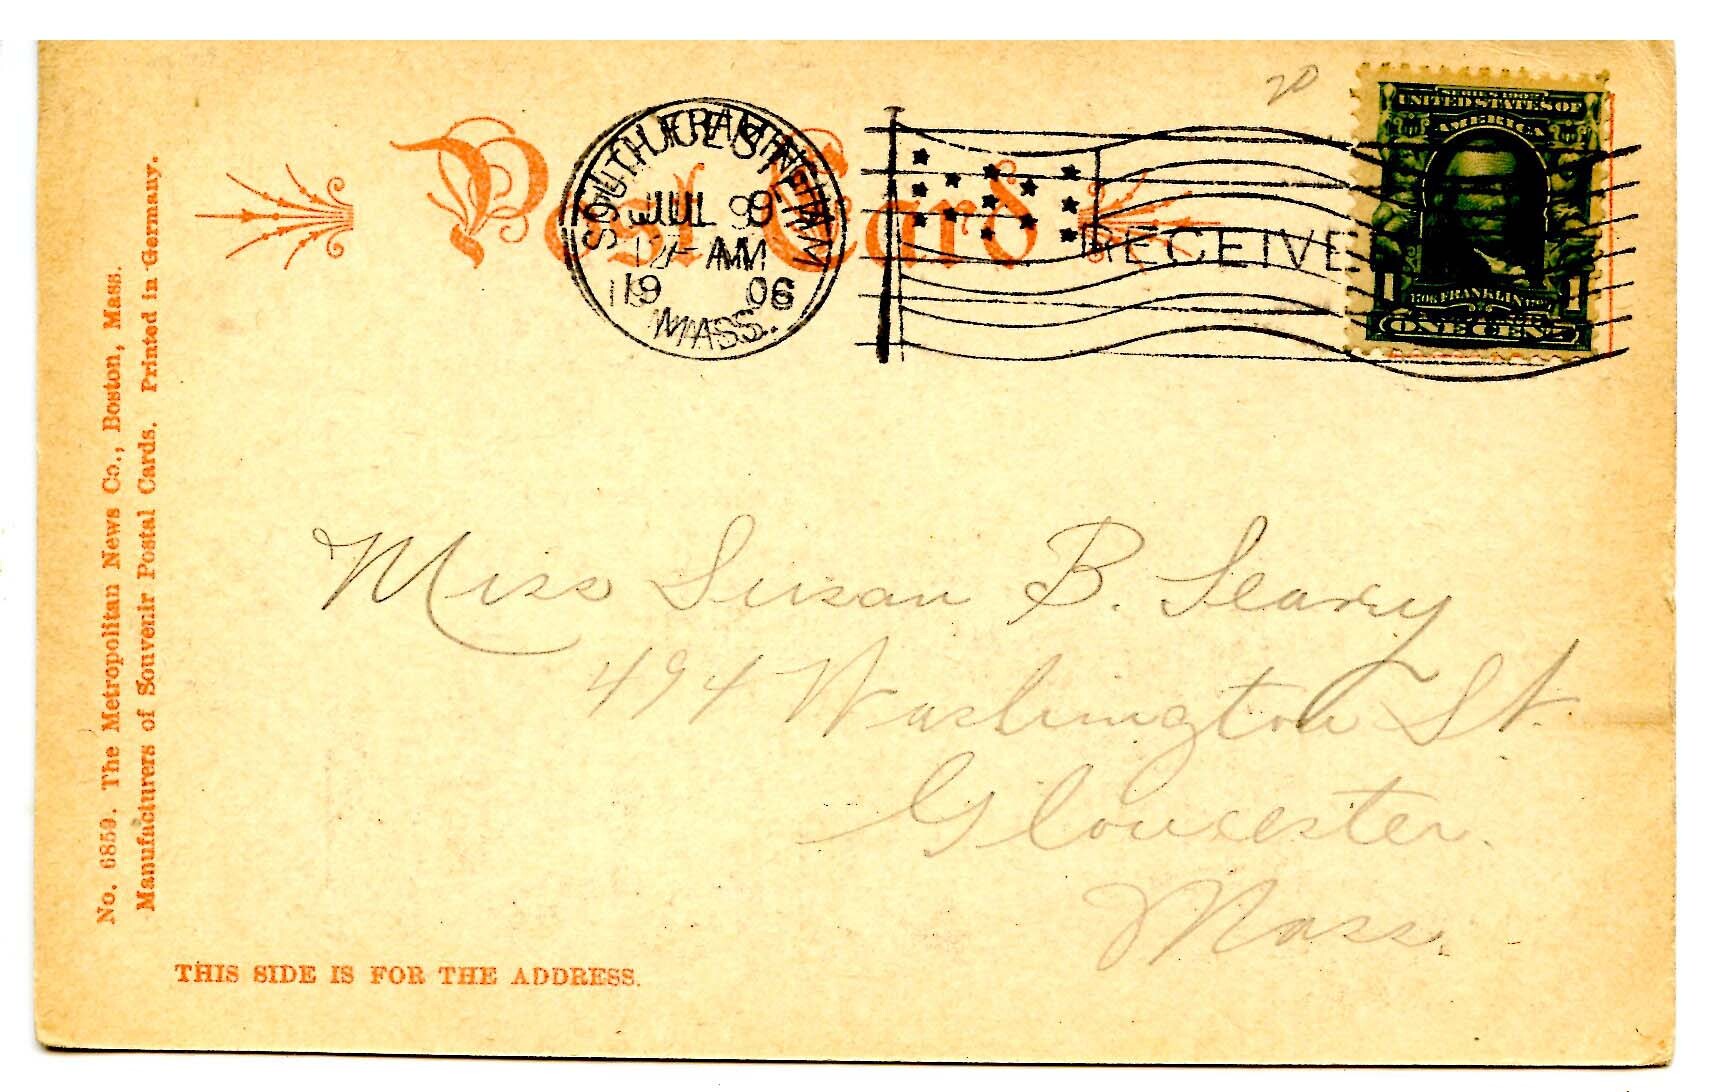 20
Post Card
SOUTH FRAMINGHAM
GLOUCESTER
JUL 9
12-AM
1906
MASS.
RECEIVE
SERIES 1902
UNITED STATES OF
AMERICA
1706 FRANKLIN 1790
1 1
ONE CENT
No. 6859. The Metropolitan News Co., Boston, Mass.
Manufacturers of Souvenir Postal Cards. Printed in Germany.
Miss Susan B. Seavy
494 Washington St.
Gloucester.
Mass.
THIS SIDE IS FOR THE ADDRESS.